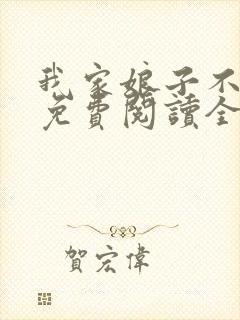 我家娘子不
免費閱讀全
賀宏偉